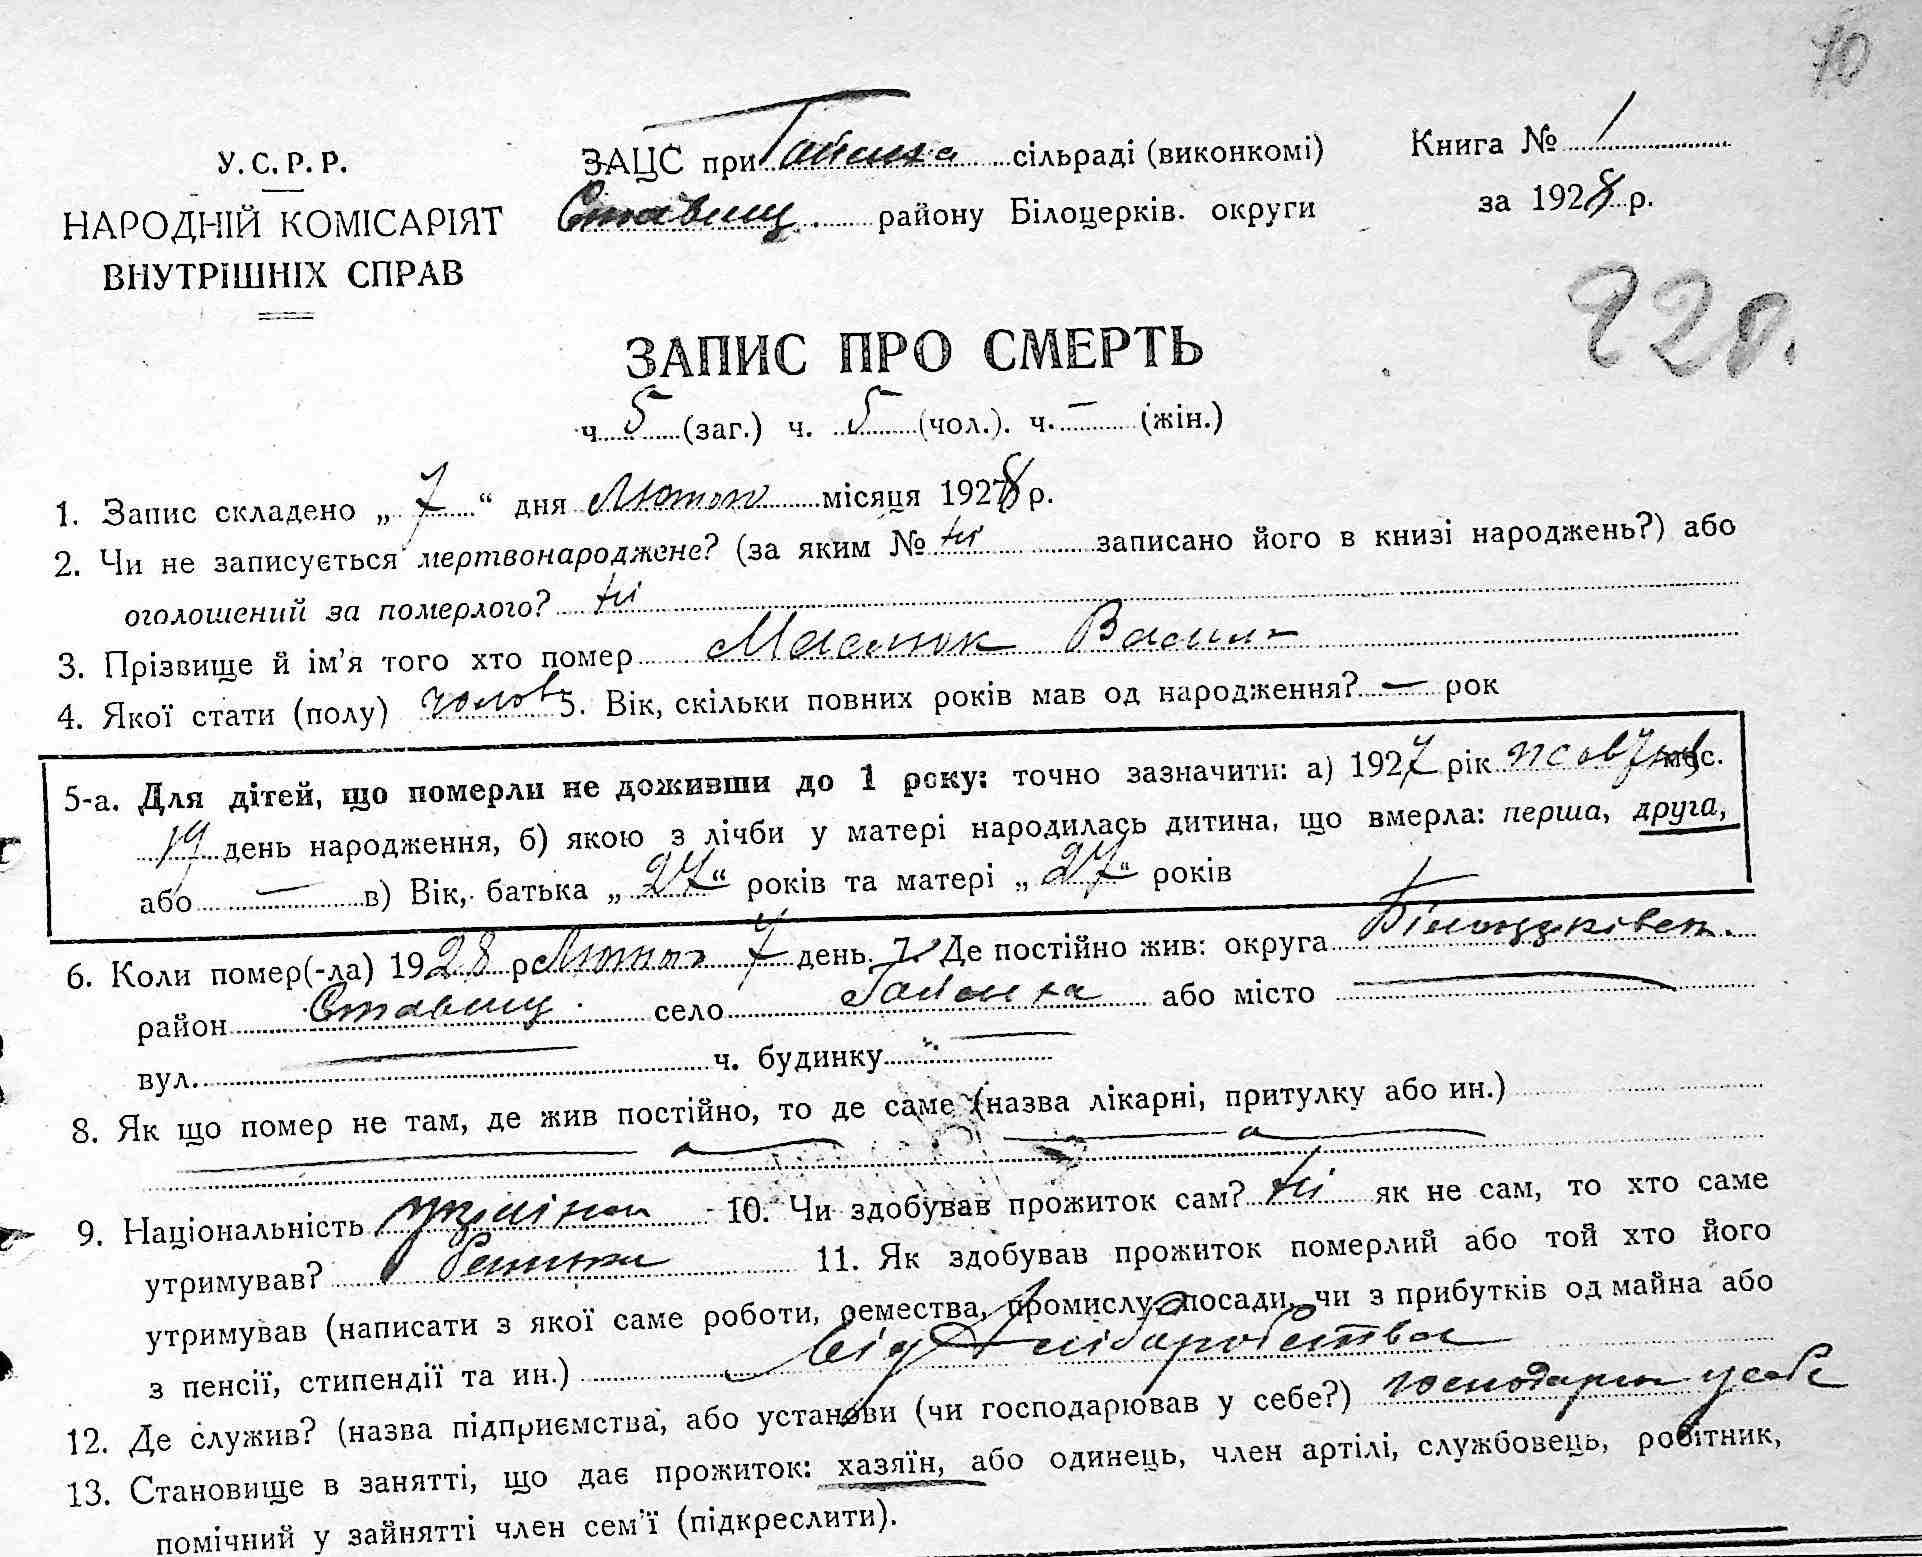 70
У.С.Р.Р.
НАРОДНІЙ КОМІСАРІЯТ
ВНУТРІШНІХ СПРАВ
ЗАЦС при Гайсиха сільраді (виконкомі)
Ставищ. району Білоцерків. округи
Книга № 1
за 1928 р.
928.
ЗАПИС ПРО СМЕРТЬ
ч. 5 (заг.) ч. 5 (чол.). ч. — (жін.)
1. Запис складено „ 7 “ дня Лютого місяця 1928 р.
2. Чи не записується мертвонароджене? (за яким № ні записано його в книзі народжень?) або
оголошений за померлого? ні
3. Прізвище й ім'я того хто помер Маслюк Василь
4. Якої стати (полу) чолов 5. Вік, скільки повних років мав од народження? — рок
5-а. Для дітей, що померли не доживши до 1 року: точно зазначити: а) 1927 рік жовтня міс.
19 день народження, б) якою з лічби у матері народилась дитина, що вмерла: перша, друга,
або — в) Вік, батька „ 27 “ років та матері „ 27 “ років
6. Коли помер(-ла) 1928 р Лютого 7 день. 7. Де постійно жив: округа Білоцерківськ.
район Ставищ. село Гайсиха або місто —
вул. — ч. будинку —
8. Як що помер не там, де жив постійно, то де саме (назва лікарні, притулку або ин.)
9. Національність україн 10. Чи здобував прожиток сам? ні як не сам, то хто саме
утримував? батьки 11. Як здобував прожиток померлий або той хто його
утримував (написати з якої саме роботи, ремества, промислу, посади, чи з прибутків од майна або
з пенсії, стипендії та ин.) від хліборобства
12. Де служив? (назва підприємства, або установи (чи господарював у себе?) господарю у себе
13. Становище в занятті, що дає прожиток: хазяїн, або одинець, член артілі, службовець, робітник,
помічний у зайнятті член сем'ї (підкреслити).